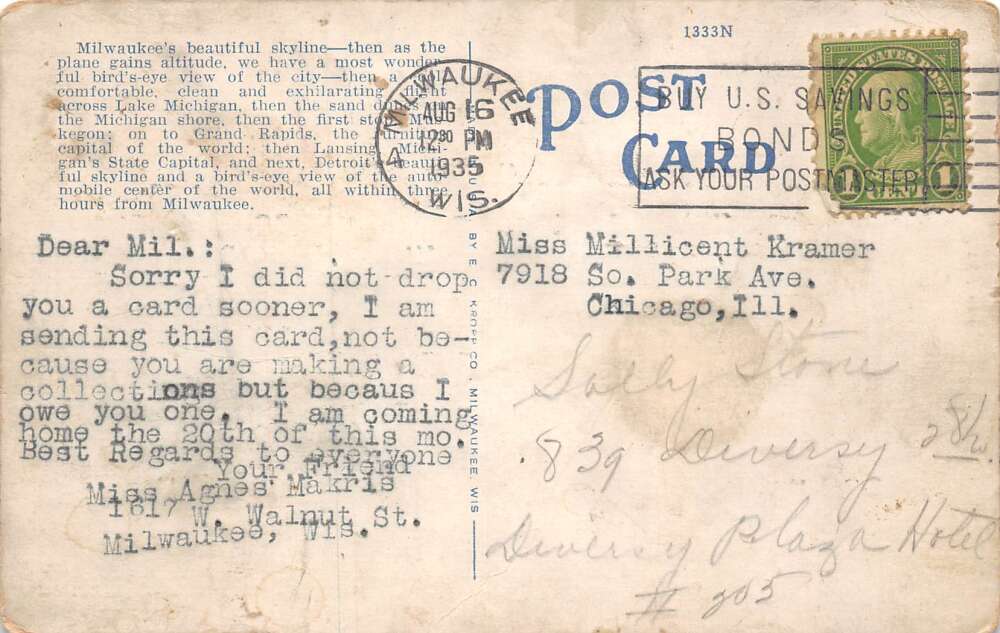 1333N
Milwaukee's beautiful skyline—then as the
plane gains altitude, we have a most wonder
ful bird's-eye view of the city—then a
comfortable, clean and exhilarating flight
across Lake Michigan, then the sand
the Michigan shore, then the first
kegon; on to Grand Rapids, the
capital of the world; then Lansing,
gan's State Capital, and next, Detroit's
ful skyline and a bird's-eye view of the auto
mobile center of the world, all within three
hours from Milwaukee.
MILWAUKEE
AUG 16
12 30 PM
1935
WIS.
4
POST
CARD
BUY U.S. SAVINGS
BONDS
ASK YOUR POSTMASTER
UNITED STATES POSTAGE
1 CENT 1
Dear Mil.:
Sorry I did not drop
you a card sooner, I am
sending this card,not be-
cause you are making a
collections but becaus I
owe you one. I am coming
home the 20th of this mo.
Best Regards to everyone
Your Friend
Miss Agnes Makris
1617 W. Walnut St.
Milwaukee, Wis.
BY E. C. KROPP CO., MILWAUKEE, WIS
Miss Millicent Kramer
7918 So. Park Ave.
Chicago,Ill.
Sally Stone
839 Diversy
Diversy Plaza Hotel
# 205